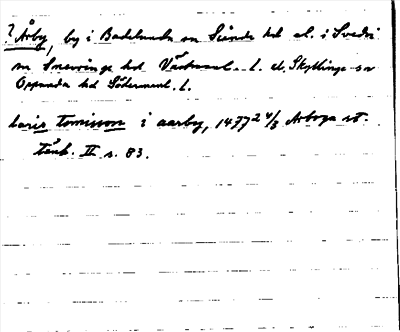 ? Årby, by i Badelunda sn Siende hd el. i Svedvi
sn Snevringe hd Västmanl. l. el. Skyllinge sn
Oppunda hd Södermanl. l.
laris tomisson i aarby, 1477 24/3 Arboga st.
tänk. II s. 83.